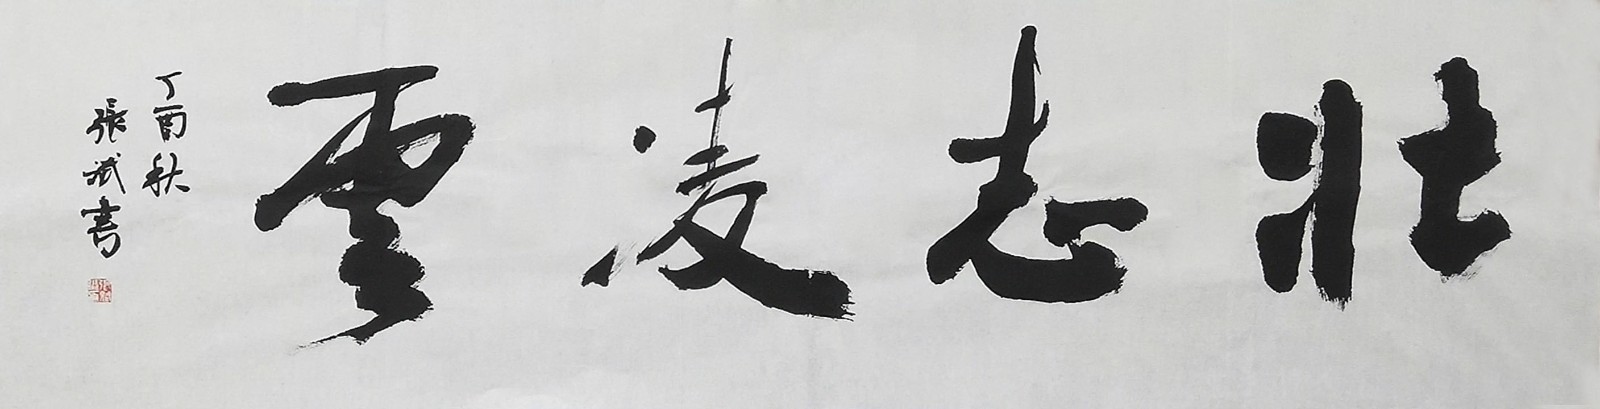 壯志凌雲
丁酉秋
張斌書